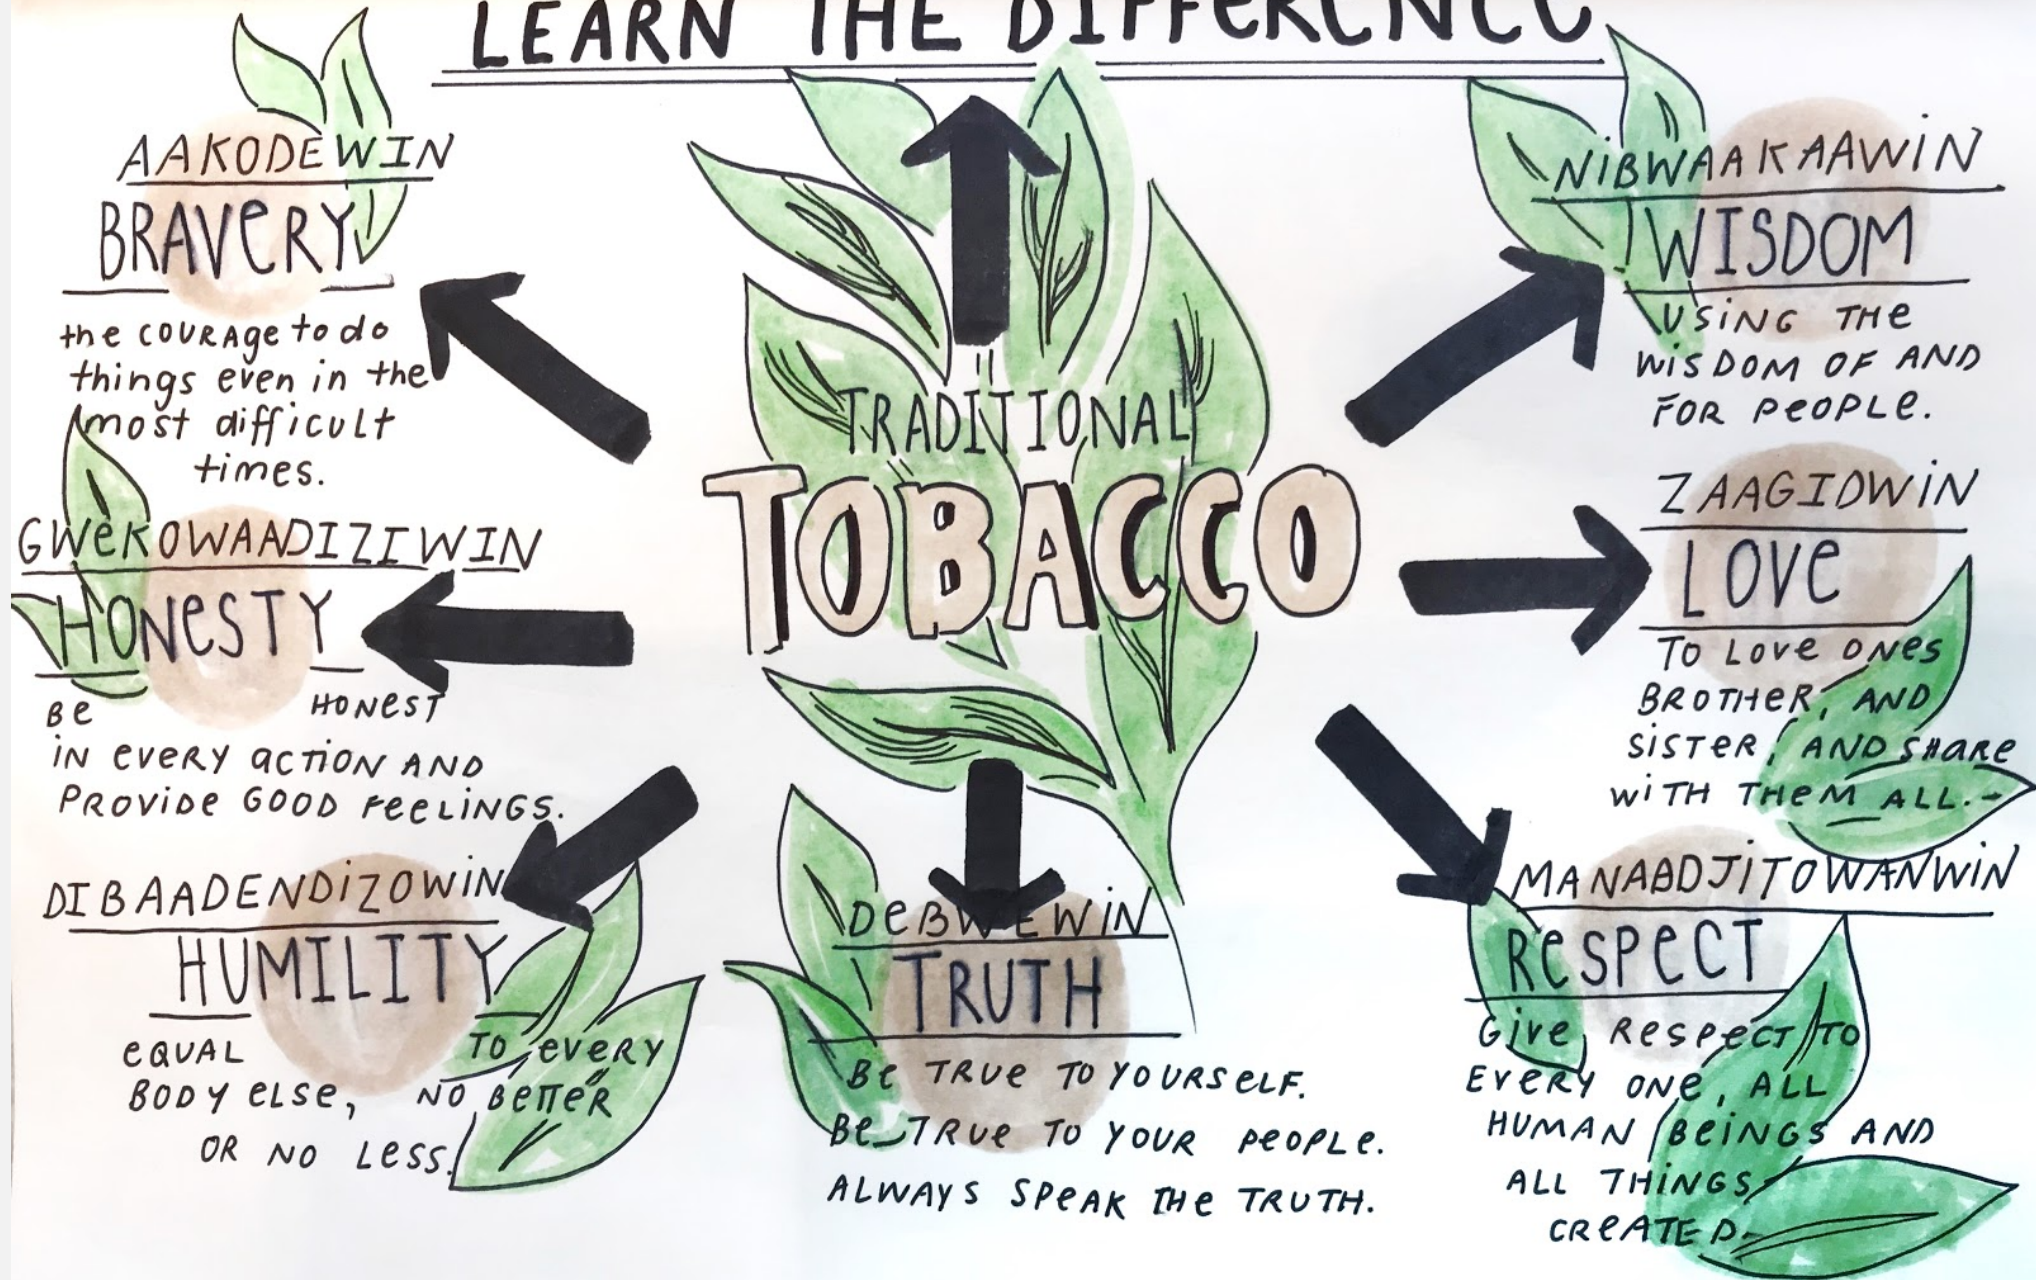 LEARN THE DIFFERENCE
AAKODEWIN
BRAVERY
the COURAGE to do
things even in the
most difficult
times.
GWEKOWAADIZIWIN
HONESTY
BE HONEST
IN EVERY ACTION AND
PROVIDE GOOD FEELINGS.
DIBAADENDIZOWIN
HUMILITY
EQUAL TO EVERY
BODY ELSE, NO BETTER
OR NO LESS.
TRADITIONAL
TOBACCO
DEBWEWIN
TRUTH
BE TRUE TO YOURSELF.
BE TRUE TO YOUR PEOPLE.
ALWAYS SPEAK THE TRUTH.
NIBWAAKAAWIN
WISDOM
USING THE
WISDOM OF AND
FOR PEOPLE.
ZAAGIDWIN
LOVE
TO LOVE ONES
BROTHER, AND
SISTER, AND SHARE
WITH THEM ALL.
MANAADJITOWANWIN
RESPECT
GIVE RESPECT TO
EVERY ONE, ALL
HUMAN BEINGS AND
ALL THINGS
CREATED